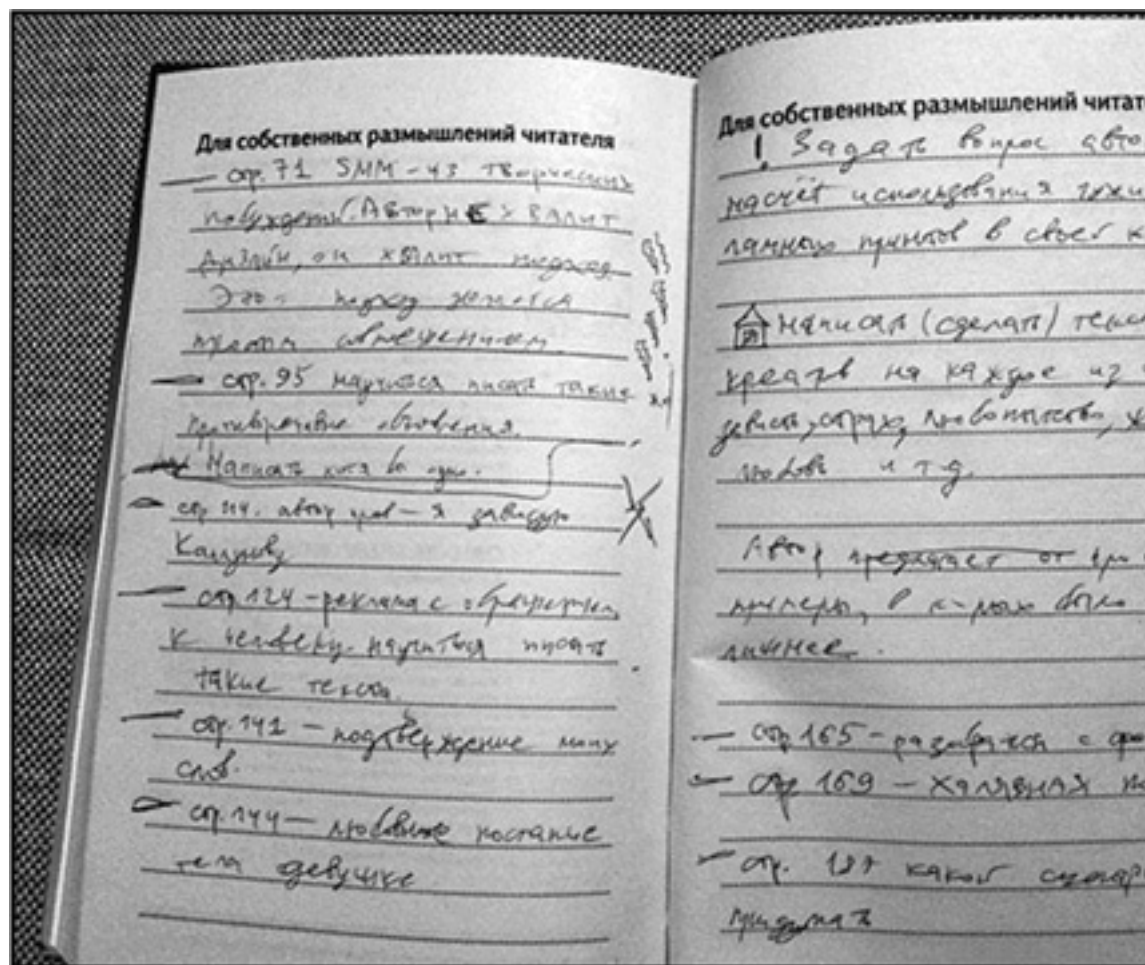 Для собственных размышлений читателя
— стр. 71 SMM – из творческих
побуждений. Автор НЕ хвалит
дизайн, он хвалит подход.
Этот подход
— стр. 95 научиться писать такие
объявления.
Написать хотя бы одно.
стр. 114. автор прав – я завидую
— стр 124 – реклама с обращением
к человеку. научиться писать
такие тексты.
— стр. 141 – подтверждение моих
слов.
стр. 144 – любовное послание
тела девушке
Для собственных размышлений читат
! Задать вопрос авто
насчёт использования
пунктов в своей к
Написать (сделать) текс
креатив на каждое из
зависть, страх, любопытство, ж
любовь и т.д.
Автор предлагает от
примеры, в к-рых было
лишнее.
— стр 165 – разобраться с
стр 169 – Халявная
стр. 187 какой сценар
придумать